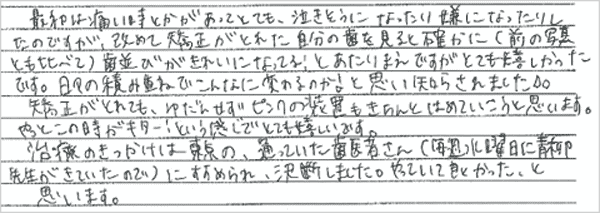 最初は痛いときとかがあってとても、泣きそうになったり嫌になったりし
たのですが、改めて矯正がとれた自分の歯を見ると確かに(前の写真
とも比べて)歯並びがきれいになってる!とあたりまえですがとても嬉しかった
です。日々の積み重ねでこんなに変わるのか!と思い知らされました。
矯正がとれても、ゆだんせずピンクの装置もきちんとはめていこうと思います。
やっとこの時がキター!という感じでとても嬉しいです。
治療のきっかけは 、通っていた歯医者さん(毎週火曜日に
先生がきていたので)にすすめられ、決断しました。やっていて良かった、と
思います。